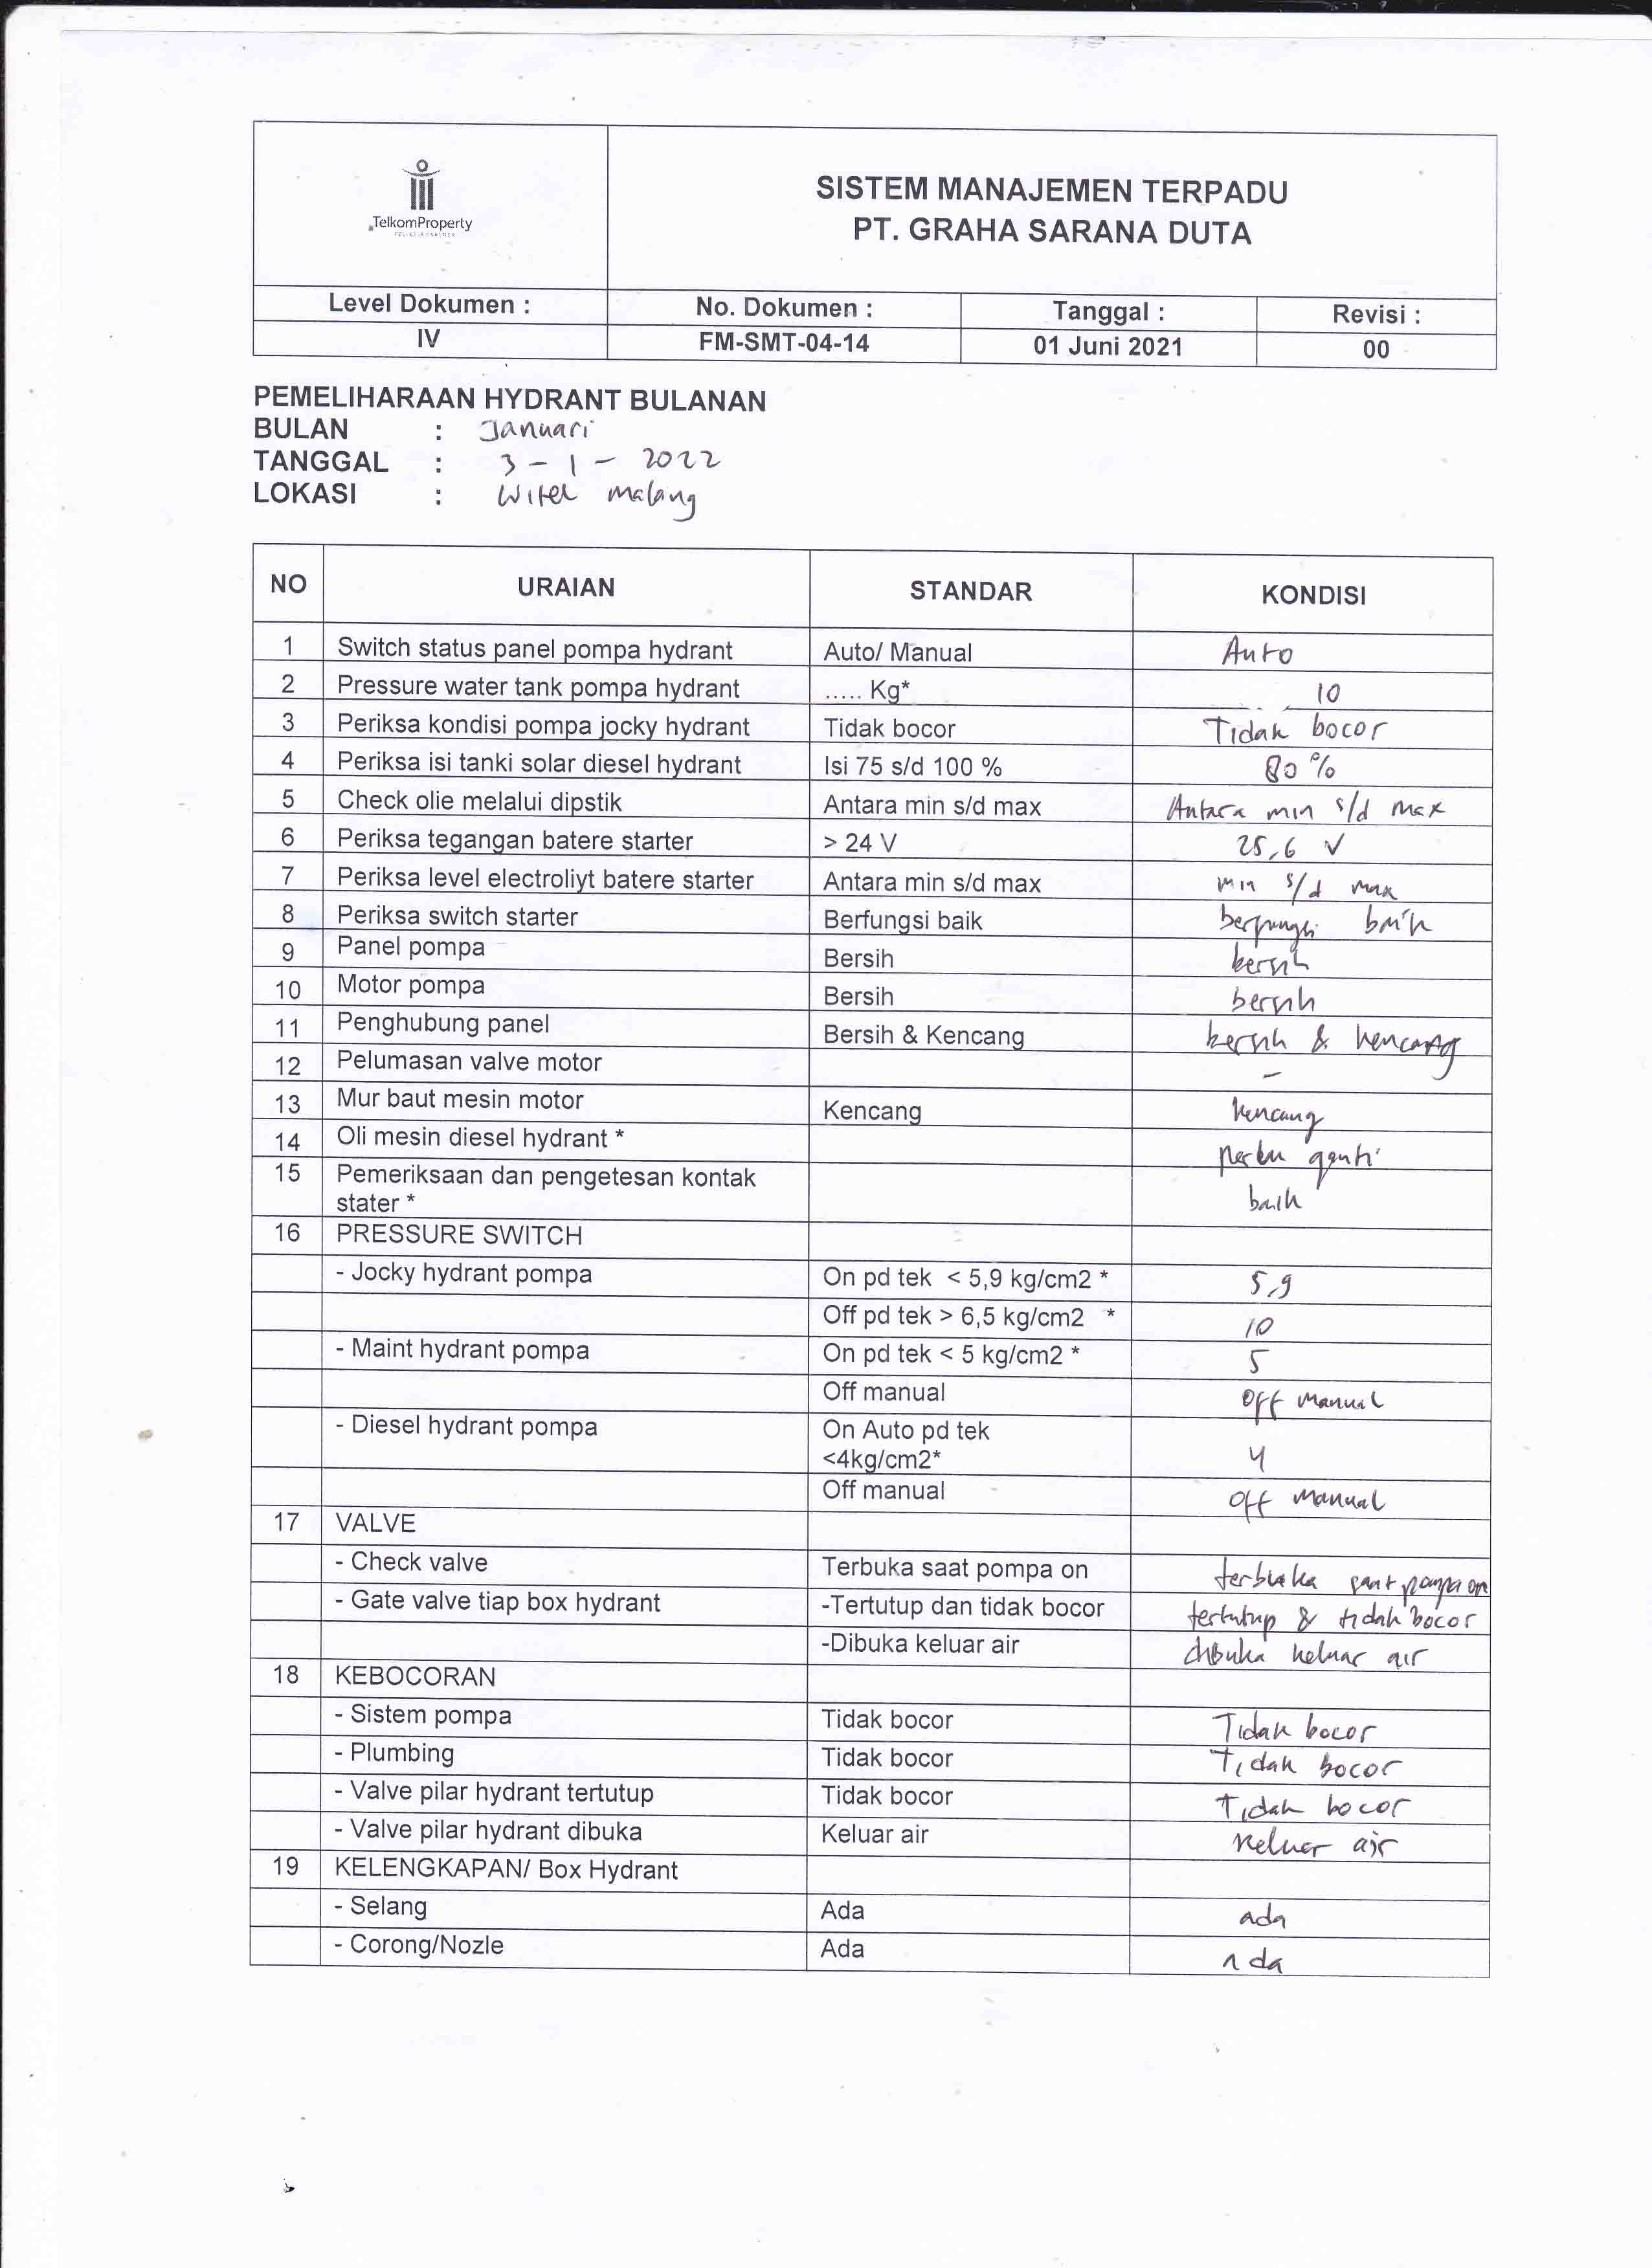 TelkomProperty
SISTEM MANAJEMEN TERPADU
PT. GRAHA SARANA DUTA
Level Dokumen : No. Dokumen : Tanggal : Revisi :
IV FM-SMT-04-14 01 Juni 2021 00
PEMELIHARAAN HYDRANT BULANAN
BULAN : Januari
TANGGAL : 3 - 1 - 2022
LOKASI : Witel malang
NO URAIAN STANDAR KONDISI
1 Switch status panel pompa hydrant Auto/ Manual Auto
2 Pressure water tank pompa hydrant ..... Kg* 10
3 Periksa kondisi pompa jocky hydrant Tidak bocor Tidak bocor
4 Periksa isi tanki solar diesel hydrant Isi 75 s/d 100 % 80 %
5 Check olie melalui dipstik Antara min s/d max Antara min s/d max
6 Periksa tegangan batere starter > 24 V 25,6 V
7 Periksa level electroliyt batere starter Antara min s/d max min s/d max
8 Periksa switch starter Berfungsi baik berfungsi baik
9 Panel pompa Bersih bersih
10 Motor pompa Bersih bersih
11 Penghubung panel Bersih & Kencang bersih & kencang
12 Pelumasan valve motor -
13 Mur baut mesin motor Kencang kencang
14 Oli mesin diesel hydrant * perlu ganti
15 Pemeriksaan dan pengetesan kontak
stater * baik
16 PRESSURE SWITCH
- Jocky hydrant pompa On pd tek < 5,9 kg/cm2 * 5,9
Off pd tek > 6,5 kg/cm2 * 10
- Maint hydrant pompa On pd tek < 5 kg/cm2 * 5
Off manual Off manual
- Diesel hydrant pompa On Auto pd tek
<4kg/cm2* 4
Off manual Off manual
17 VALVE
- Check valve Terbuka saat pompa on terbuka saat pompa on
- Gate valve tiap box hydrant -Tertutup dan tidak bocor tertutup & tidak bocor
-Dibuka keluar air dibuka keluar air
18 KEBOCORAN
- Sistem pompa Tidak bocor Tidak bocor
- Plumbing Tidak bocor Tidak bocor
- Valve pilar hydrant tertutup Tidak bocor Tidak bocor
- Valve pilar hydrant dibuka Keluar air Keluar air
19 KELENGKAPAN/ Box Hydrant
- Selang Ada ada
- Corong/Nozle Ada ada